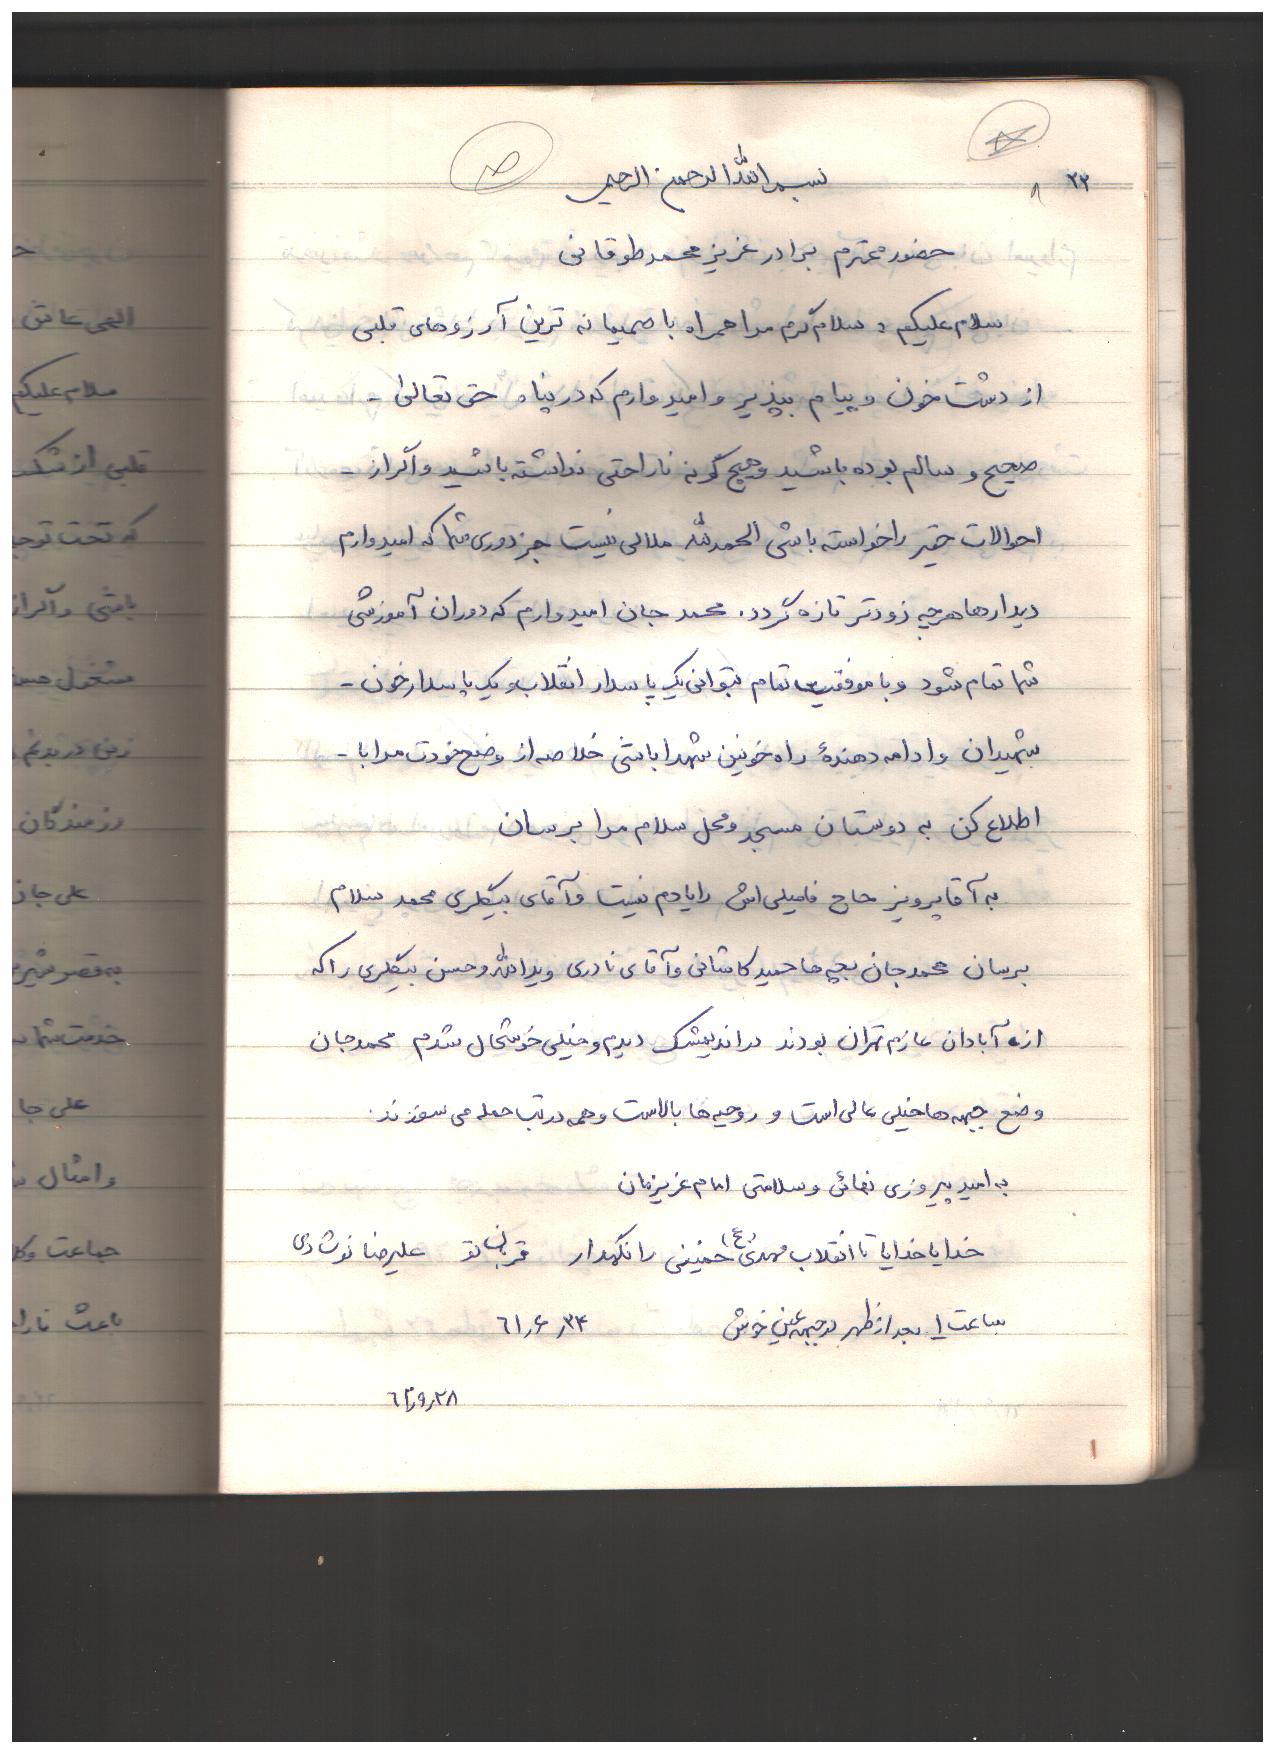 ۲۳
۸
بسم الله الرحمن الرحیم
حضور محترم برادر عزیز محمد طوقانی
سلام علیکم ؛ سلام گرم مرا همراه با صمیمانه ترین آرزوهای قلبی
از دشت خون و پیام بپذیر و امیدوارم که در پناه حق تعالی -
صحیح و سالم بوده باشید و هیچ گونه ناراحتی نداشته باشید و اگر از -
احوالات حقیر را خواسته باشی الحمدلله ملالی نیست جز دوری شما که امیدوارم
دیدارها هرچه زودتر تازه گردد. محمد جان امیدوارم که دوران آموزشی
شما تمام شود و با موفقیت تمام بتوانی یک پاسدار انقلاب و یک پاسدار خون -
شهیدان و ادامه دهندهٔ راه خونین شهدا باشی خلاصه از وضع خودت مرا با -
اطلاع کن به دوستان مسجد و محل سلام مرا برسان
به آقا پرویز حاج فامیلی اش را یادم نیست و آقای بیگلری محمد سلام
برسان محمد جان بچه ها حمید کاشانی و آقای نادری و یدالله و حسن بیگلری را که
از آبادان عازم تهران بودند در اندیمشک دیدم و خیلی خوشحال شدم محمد جان
وضع جبهه ها خیلی عالی است و روحیه ها بالاست و همه در تب حمله می سوزند.
به امید پیروزی نهائی و سلامتی امام عزیزمان
خدایا خدایا تا انقلاب مهدی (ع) خمینی را نگهدار قربان تو علیرضا نوشادی
ساعت ۱ بعد از ظهر در جبهه عین خوش ۶۱٫۶٫۲۴
۶۲٫۹٫۲۸
الهی عاشق
سلام علیکم
قلبی از
که تحت
باشی و اگر از
مشغول
رزمندگان
علی جان
به قصر شیرین
خدمت شما
علی جا
و امثال
جماعت
باعث نارا